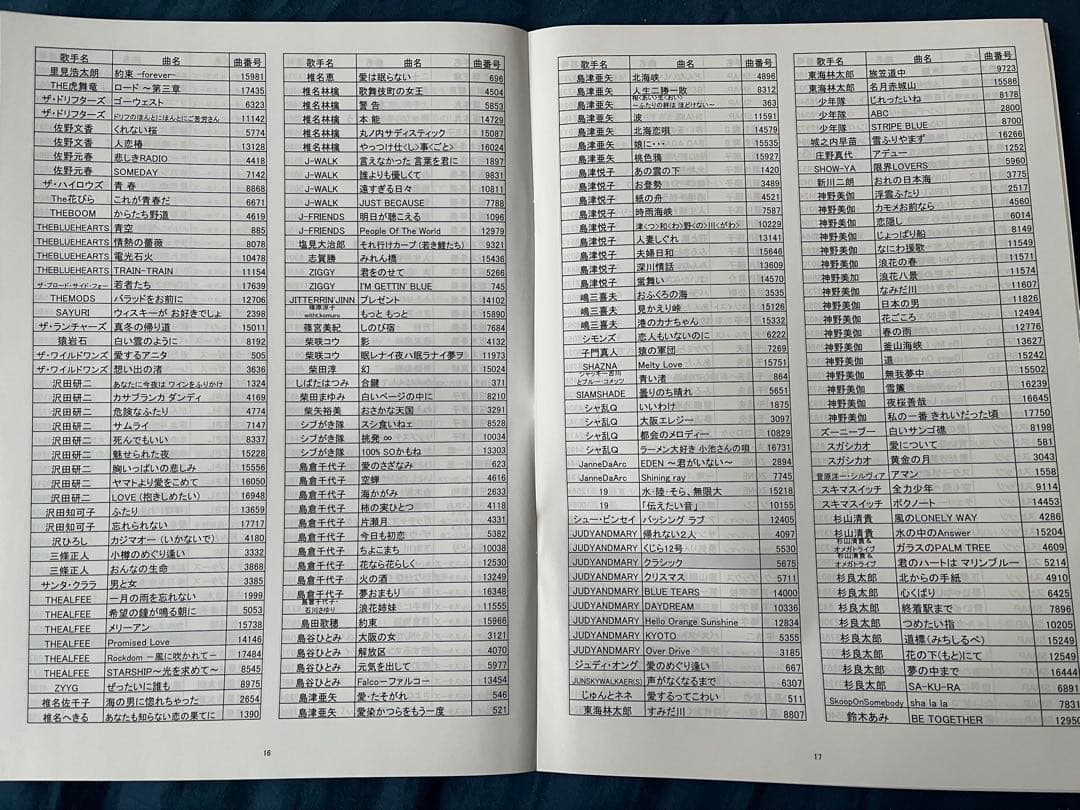 歌手名 曲名 曲番号
里見浩太朗 約束 -forever- 15981
THE虎舞竜 ロード ～第三章 17435
ザ・ドリフターズ ゴーウェスト 6323
ザ・ドリフターズ ドリフのほんとにほんとにご苦労さん 11142
佐野文香 くれない桜 5774
佐野文香 人恋椿 13128
佐野元春 悲しきRADIO 4418
佐野元春 SOMEDAY 7142
ザ・ハイロウズ 青春 8868
The花びら これが青春だ 6671
THEBOOM からたち野道 4619
THEBLUEHEARTS 青空 885
THEBLUEHEARTS 情熱の薔薇 8078
THEBLUEHEARTS 電光石火 10478
THEBLUEHEARTS TRAIN-TRAIN 11154
ザ・ブロード・サイド・フォー 若者たち 17639
THEMODS バラッドをお前に 12706
SAYURI ウィスキーが お好きでしょ 2398
ザ・ランチャーズ 真冬の帰り道 15011
猿岩石 白い雲のように 8192
ザ・ワイルドワンズ 愛するアニタ 505
ザ・ワイルドワンズ 想い出の渚 3636
沢田研二 あなたに今夜は ワインをふりかけ 1324
沢田研二 カサブランカ ダンディ 4169
沢田研二 危険なふたり 4774
沢田研二 サムライ 7147
沢田研二 死んでもいい 8337
沢田研二 魅せられた夜 15228
沢田研二 胸いっぱいの悲しみ 15556
沢田研二 ヤマトより愛をこめて 16050
沢田研二 LOVE (抱きしめたい) 16948
沢田知可子 ふたり 13659
沢田知可子 忘れられない 17717
沢ひろし カジマオー (いかないで) 4180
三條正人 小樽のめぐり逢い 3332
三條正人 おんなの生命 3868
サンタ・クララ 男と女 3385
THEALFEE 一月の雨を忘れない 1999
THEALFEE 希望の鐘が鳴る朝に 5053
THEALFEE メリーアン 15738
THEALFEE Promised Love 14146
THEALFEE Rockdom ー風に吹かれてー 17484
THEALFEE STARSHIP～光を求めて～ 8545
ZYYG ぜったいに誰も 8975
椎名佐千子 海の男に惚れちゃった 2654
椎名へきる あなたも知らない恋の果てに 1390
16
歌手名 曲名 曲番号
椎名恵 愛は眠らない 696
椎名林檎 歌舞伎町の女王 4504
椎名林檎 警告 5853
椎名林檎 本能 14729
椎名林檎 丸ノ内サディスティック 15087
椎名林檎 やっつけ仕〈し〉事〈ごと〉 16024
J-WALK 言えなかった 言葉を君に 1897
J-WALK 誰よりも優しくて 9831
J-WALK 遠すぎる日々 10811
J-WALK JUST BECAUSE 7788
J-FRIENDS 明日が聴こえる 1096
J-FRIENDS People Of The World 12979
塩見大治郎 それ行けカープ (若き鯉たち) 9321
志賀勝 みれん橋 15436
ZIGGY 君をのせて 5266
ZIGGY I'M GETTIN' BLUE 745
JITTERRIN'JINN プレゼント 14102
篠原涼子 with t.komuro もっと もっと 15890
篠宮美紀 しのび宿 7684
柴咲コウ 影 4132
柴咲コウ 眠レナイ夜ハ眠ラナイ夢ヲ 11973
柴田淳 幻 15024
しばたはつみ 合鍵 371
柴田まゆみ 白いページの中に 8210
柴矢裕美 おさかな天国 3291
シブがき隊 スシ食いねェ 8528
シブがき隊 挑発 ∞ 10034
シブがき隊 100% SOかもね 13303
島倉千代子 愛のさざなみ 623
島倉千代子 空蝉 4616
島倉千代子 海がかみ 2633
島倉千代子 柿の実ひとつ 4118
島倉千代子 片瀬月 4331
島倉千代子 今日も初恋 5382
島倉千代子 ちよこまち 10038
島倉千代子 花なら花らしく 12530
島倉千代子 火の酒 13249
島倉千代子 夢おまもり 16348
島倉千代子・石川さゆり 浪花姉妹 11555
島田歌穂 約束 15966
島谷ひとみ 大阪の女 3121
島谷ひとみ 解放区 4070
島谷ひとみ 元気を出して 5977
島谷ひとみ Falcoーファルコー 13454
島津亜矢 愛・たそがれ 546
島津亜矢 愛染かつらをもう一度 521
歌手名 曲名 曲番号
島津亜矢 北海峡 4896
島津亜矢 人生二勝一敗 8312
島津亜矢 ～ふたりの絆は ほどけない～ 363
島津亜矢 波 11591
島津亜矢 北海恋唄 14579
島津亜矢 娘に・・・ 15535
島津亜矢 桃色鴉 15927
島津悦子 あの雲の下 1420
島津悦子 お登勢 3489
島津悦子 紙の舟 4521
島津悦子 時雨海峡 7587
島津悦子 津〈つ〉和〈わ〉野〈の〉川〈がわ〉 10229
島津悦子 人妻しぐれ 13141
島津悦子 夫婦日和 15646
島津悦子 深川情話 13609
島津悦子 蛍舞い 14570
嶋三喜夫 おふくろの海 3535
嶋三喜夫 見かえり峠 15126
嶋三喜夫 港のカナちゃん 15332
シモンズ 恋人もいないのに 6222
子門真人 猿の軍団 7269
SHAZNA Melty Love 15751
ジャッキー吉川とブルー・コメッツ 青い渚 864
SIAMSHADE 曇りのち晴れ 5651
シャ乱Q いいわけ 1875
シャ乱Q 大阪エレジー 3097
シャ乱Q 都会のメロディー 10829
シャ乱Q ラーメン大好き 小池さんの唄 16731
JanneDaArc EDEN ～君がいない～ 2894
JanneDaArc Shining ray 7745
19 水・陸・そら、無限大 15218
19 「伝えたい音」 10155
シュー・ピンセイ パッシング ラブ 12405
JUDYANDMARY 帰れない2人 4097
JUDYANDMARY くじら12号 5530
JUDYANDMARY クラシック 5675
JUDYANDMARY クリスマス 5711
JUDYANDMARY BLUE TEARS 14000
JUDYANDMARY DAYDREAM 10336
JUDYANDMARY Hello Orange Sunshine 12834
JUDYANDMARY KYOTO 5355
JUDYANDMARY Over Drive 3185
ジュディ・オング 愛のめぐり逢い 667
JUNSKYWALKER(S) 声がなくなるまで 6307
じゅんとネネ 愛するってこわい 511
東海林太郎 すみだ川 8807
17
歌手名 曲名 曲番号
東海林太郎 旅笠道中 9723
東海林太郎 名月赤城山 15586
少年隊 じれったいね 8178
少年隊 ABC 2800
少年隊 STRIPE BLUE 8700
城之内早苗 雪ふりやまず 16266
庄野真代 アデュー 1252
SHOW-YA 限界LOVERS 5960
新川二朗 おれの日本海 3775
神野美伽 浮雲ふたり 2517
神野美伽 カモメお前なら 4560
神野美伽 恋隠し 6014
神野美伽 じょっぱり船 8149
神野美伽 なにわ援歌 11549
神野美伽 浪花の春 11571
神野美伽 浪花八景 11574
神野美伽 なみだ川 11607
神野美伽 日本の男 11826
神野美伽 花ごころ 12494
神野美伽 春の雨 12776
神野美伽 釜山海峡 13627
神野美伽 道 15242
神野美伽 無我夢中 15502
神野美伽 雪簾 16239
神野美伽 夜桜善哉 16645
神野美伽 私の一番 きれいだった頃 17750
ズーニーブー 白いサンゴ礁 8198
スガシカオ 愛について 581
スガシカオ 黄金の月 3043
菅原洋一・シルヴィア アマン 1558
スキマスイッチ 全力少年 9114
スキマスイッチ ボクノート 14453
杉山清貴 風のLONELY WAY 4286
杉山清貴 水の中のAnswer 15204
杉山清貴&オメガトライブ ガラスのPALM TREE 4609
杉山清貴&オメガトライブ 君のハートは マリンブルー 5214
杉良太郎 北からの手紙 4910
杉良太郎 心くばり 6425
杉良太郎 終着駅まで 7896
杉良太郎 つめたい指 10205
杉良太郎 道標〈みちしるべ〉 15249
杉良太郎 花の下〈もと〉にて 12549
杉良太郎 夢の中まで 16444
杉良太郎 SA-KU-RA 6891
SkoopOnSomebody sha la la 7831
鈴木あみ BE TOGETHER 12950